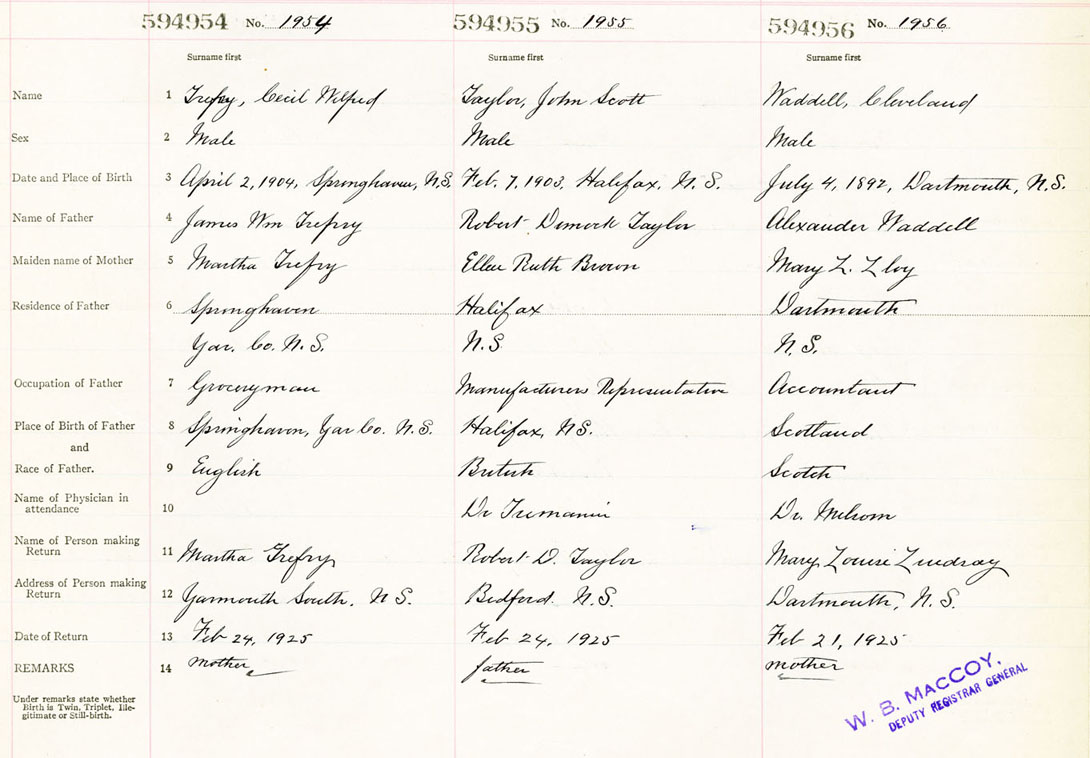 594954 No. 1954 594955 No. 1955 594956 No. 1956
Surname first Surname first Surname first
Name 1 Trefry, Cecil Wilfred Taylor, John Scott Waddell, Cleveland
Sex 2 Male Male Male
Date and Place of Birth 3 April 2, 1904, Springhaven, N.S. Feb. 7, 1903, Halifax, N.S. July 4, 1892, Dartmouth, N.S.
Name of Father 4 James Wm Trefry Robert Dimock Taylor Alexander Waddell
Maiden name of Mother 5 Martha Trefry Ellen Ruth Brown Mary L.
Residence of Father 6 Springhaven Halifax Dartmouth
Yar. Co. N.S. N.S N.S.
Occupation of Father 7 Groceryman Manufacturers Representative Accountant
Place of Birth of Father 8 Springhaven, Yar Co. N.S. Halifax, N.S. Scotland
and
Race of Father. 9 English British Scotch
Name of Physician in
attendance 10 Dr Dr.
Name of Person making
Return 11 Martha Trefry Robert D. Taylor Mary Louise Lindsay
Address of Person making
Return 12 Yarmouth South, N.S. Bedford N.S. Dartmouth, N.S.
Date of Return 13 Feb 24, 1925 Feb 24, 1925 Feb 21, 1925
REMARKS 14 mother father mother
Under remarks state whether
Birth is Twin, Triplet, Ille-
gitimate or Still-birth.
W. B. MACCOY,
DEPUTY REGISTRAR GENERAL